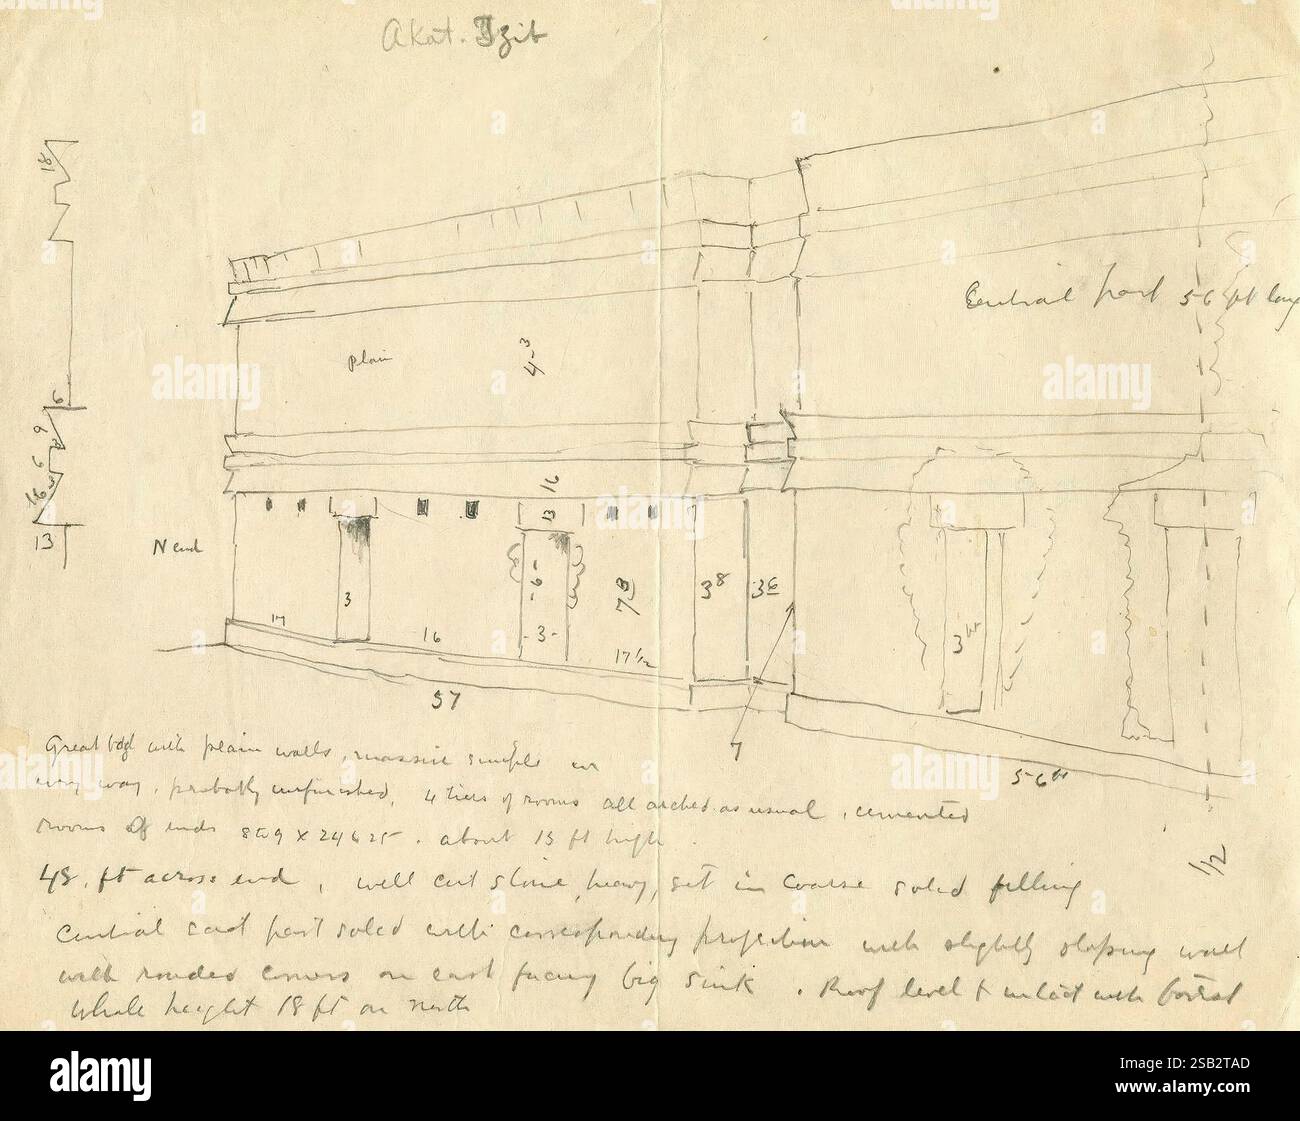 Akat. Tzib
18
Central part 56 ft long
plain
4-3
6
9
5
16
13
16
13
N end
3
-6-
-3-
7 8
3 8
3 6
3 ft
17
16
17 1/2
57
7
56 ft
1/2
Great bdg with plain walls, massive simple in
every way, probably unfinished, 4 tiers of rooms all arched as usual, cemented
rooms of ends 8 to 9 x 24 to 25. about 13 ft high.
48. ft across end, well cut stone, heavy, set in coarse solid filling
Central east part solid with corresponding projection with slightly sloping wall
with rounded corners on east facing big sink. Roof level & intact with
Whole height 18 ft on north
alamy
Image ID: 2SB2TAD
www.alamy.com